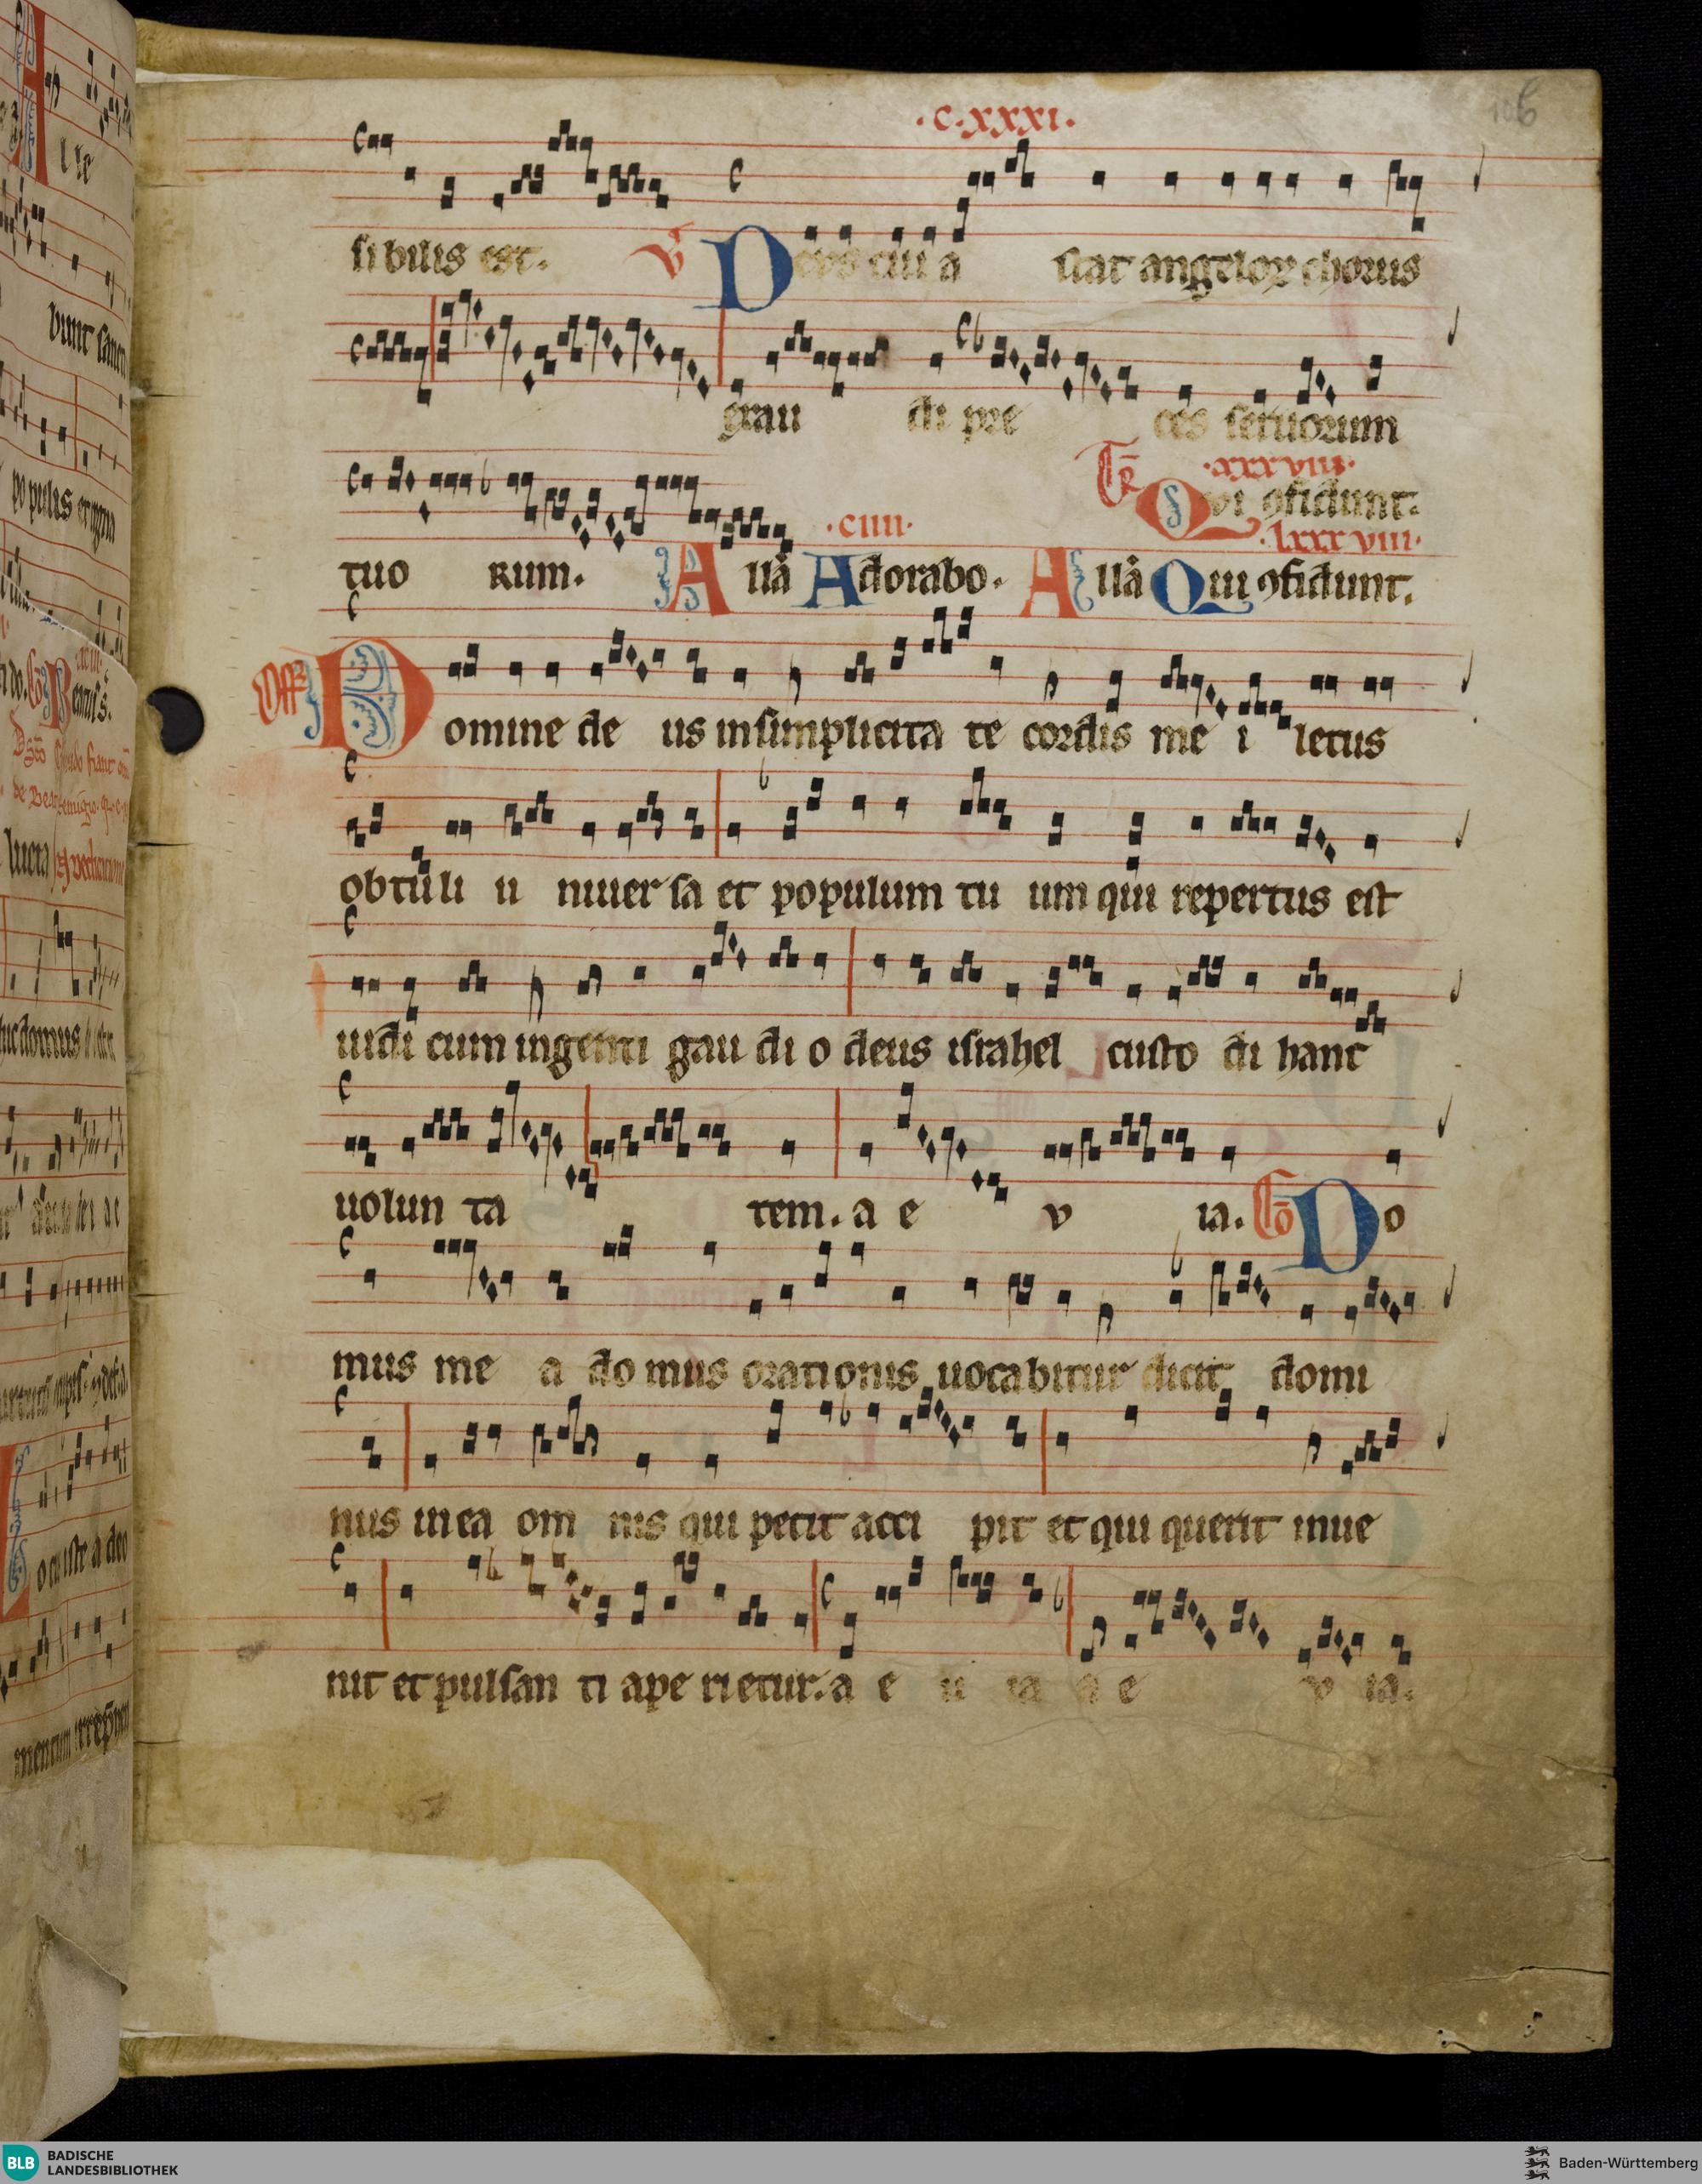 .C.XXXI.
106
sibilis est. V Deus cui a stat angeloꝝ chorus
exau di pre ces seruorum
Gͬ .xxxviii.
Qvi ꝯfidunt.
.ciiii. .lxxxviii.
tuo rum. A llā Adorabo. A llā Qui ꝯfidunt.
Off Domine de us in simplicita te cordis me i letus
obtuli u niuer sa et populum tu um qui repertus est
uidi cum ingenti gau di o deus israhel custo di hanc
uolun ta tem. a e v ia. Cō Do
mus me a do mus orationis uocabitur dicit domi
nus in ea om nis qui petit acci pit et qui querit inue
nit et pulsan ti ape rietur. a e u ia a e v ia.
BLB BADISCHE LANDESBIBLIOTHEK
Baden-Württemberg